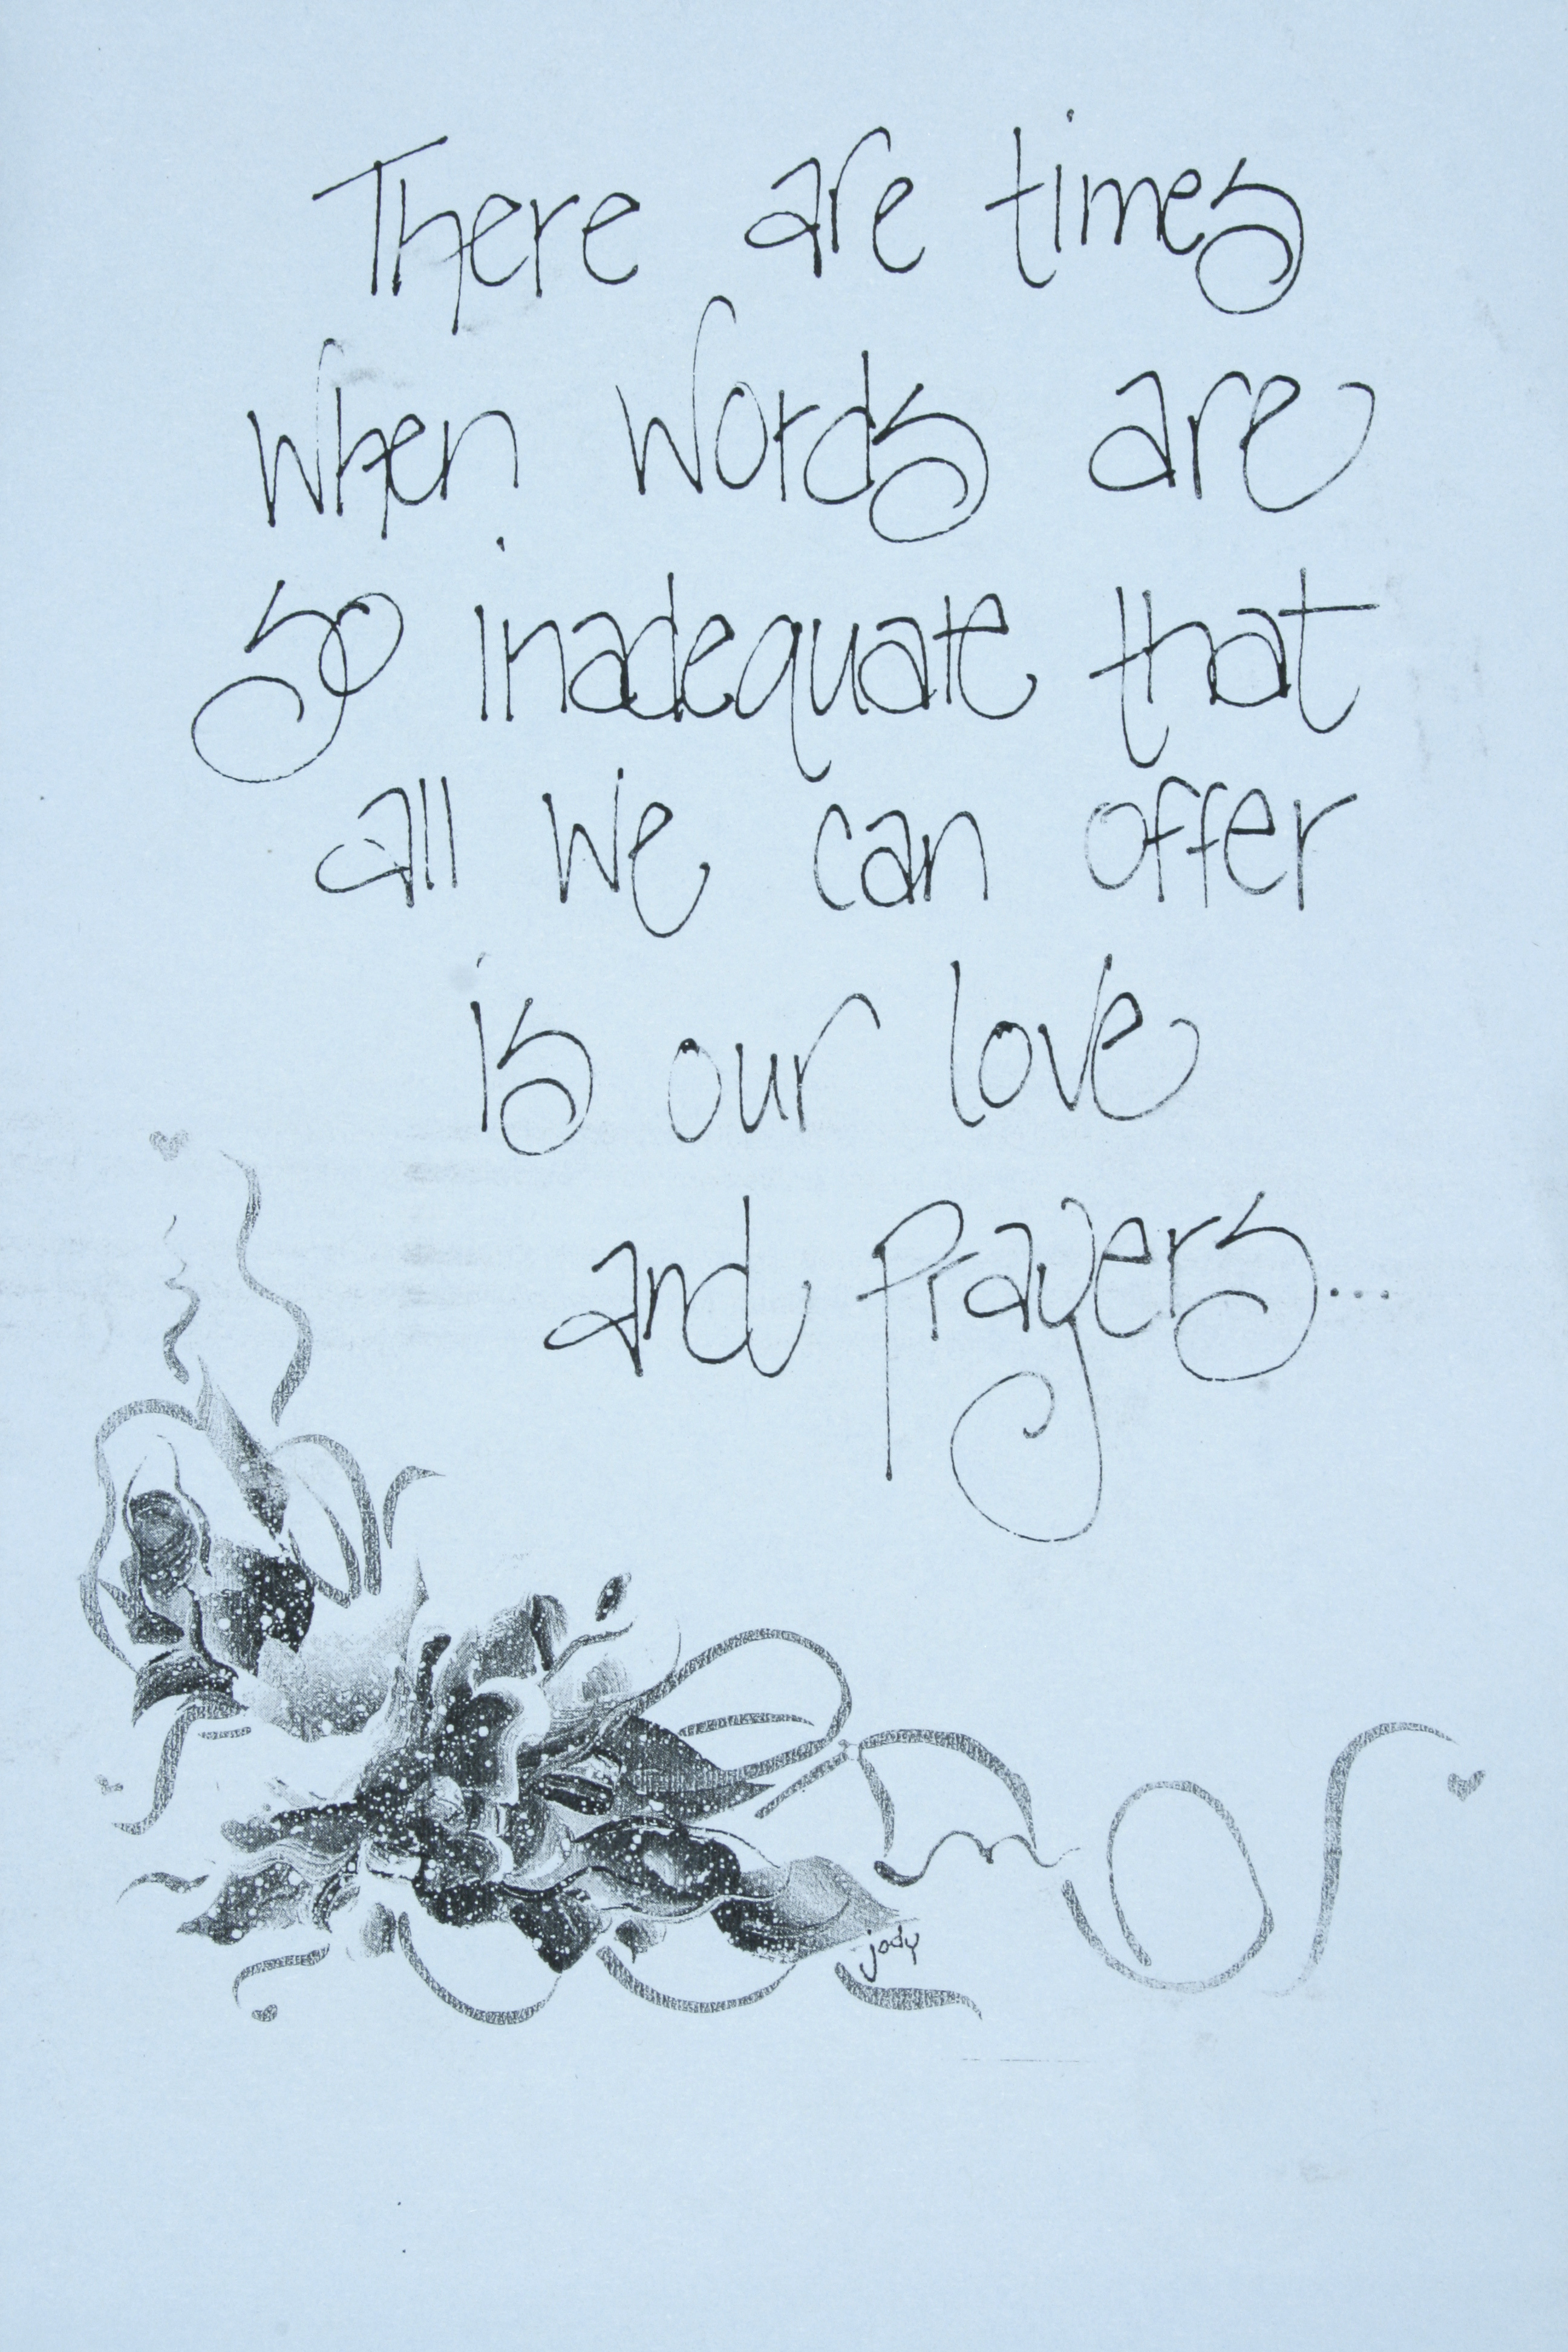 There are times
when words are
so inadequate that
all we can offer
is our love
and prayers...
jody